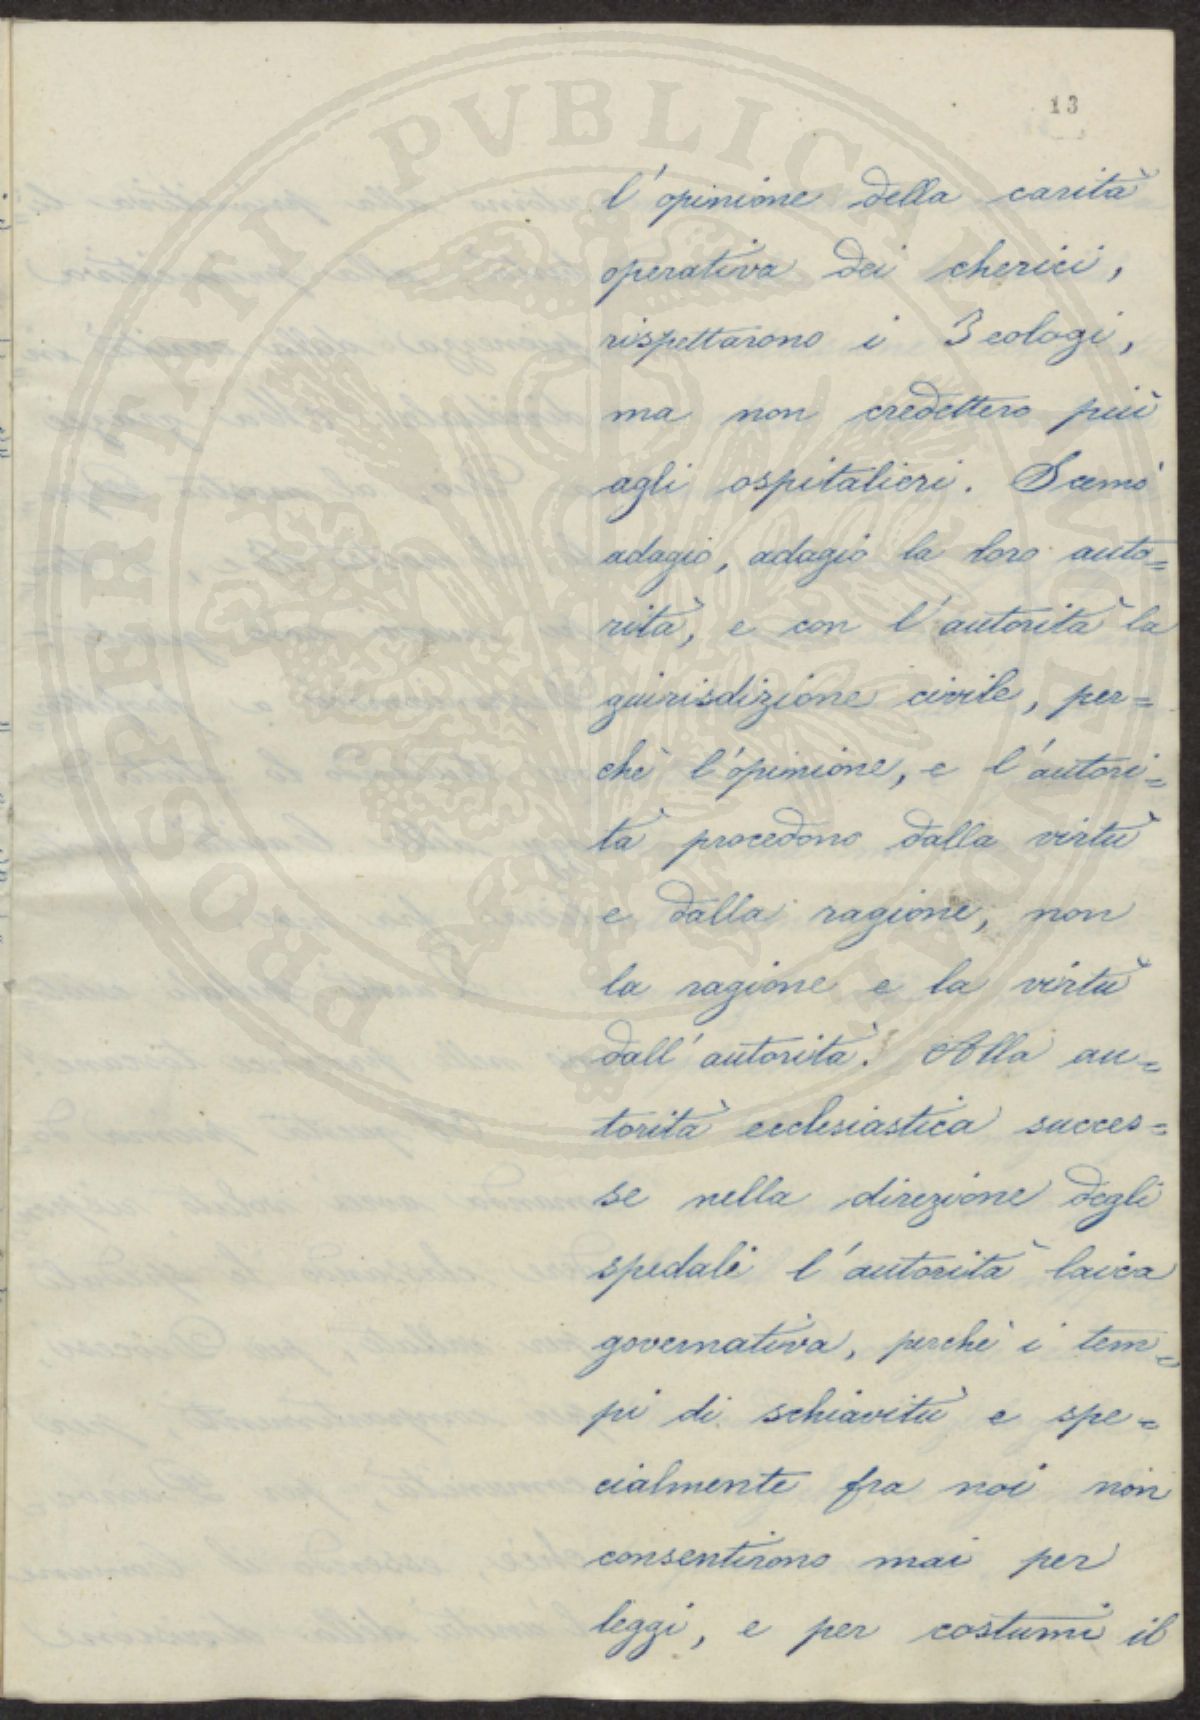 PROSPERITATI PVBLICAE NOVAE
13
l'opinione della carità
operativa dei cherici,
rispettarono i Teologi,
ma non credettero più
agli ospitalieri. Scemò
adagio, adagio la loro auto=
rità, e con l'autorità la
guirisdizione civile, per=
chè l'opinione, e l'autori=
tà procedono dalla virtù
e dalla ragione, non
la ragione e la virtù
dall'autorità. Alla au=
torità ecclesiastica succes=
se nella direzione degli
spedali l'autorità laica
governativa, perchè i tem=
pi di schiavitù e spe=
cialmente fra noi non
consentirono mai per
leggi, e per costumi il